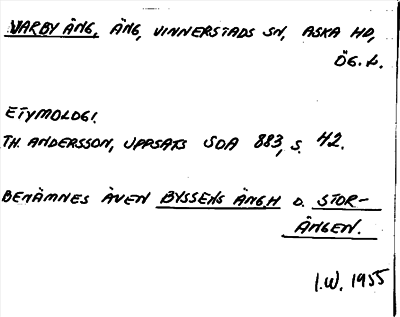 VARBY ÄNG, ÄNG, VINNERSTADS SN, ASKA HD,
ÖG. L.
ETYMOLOGI.
TH. ANDERSSON, UPPSATS SOA 883, S. 42.
BENÄMNES ÄVEN BYSSENS ÄNG.H O. STOR-
ÄNGEN.
I.W. 1955